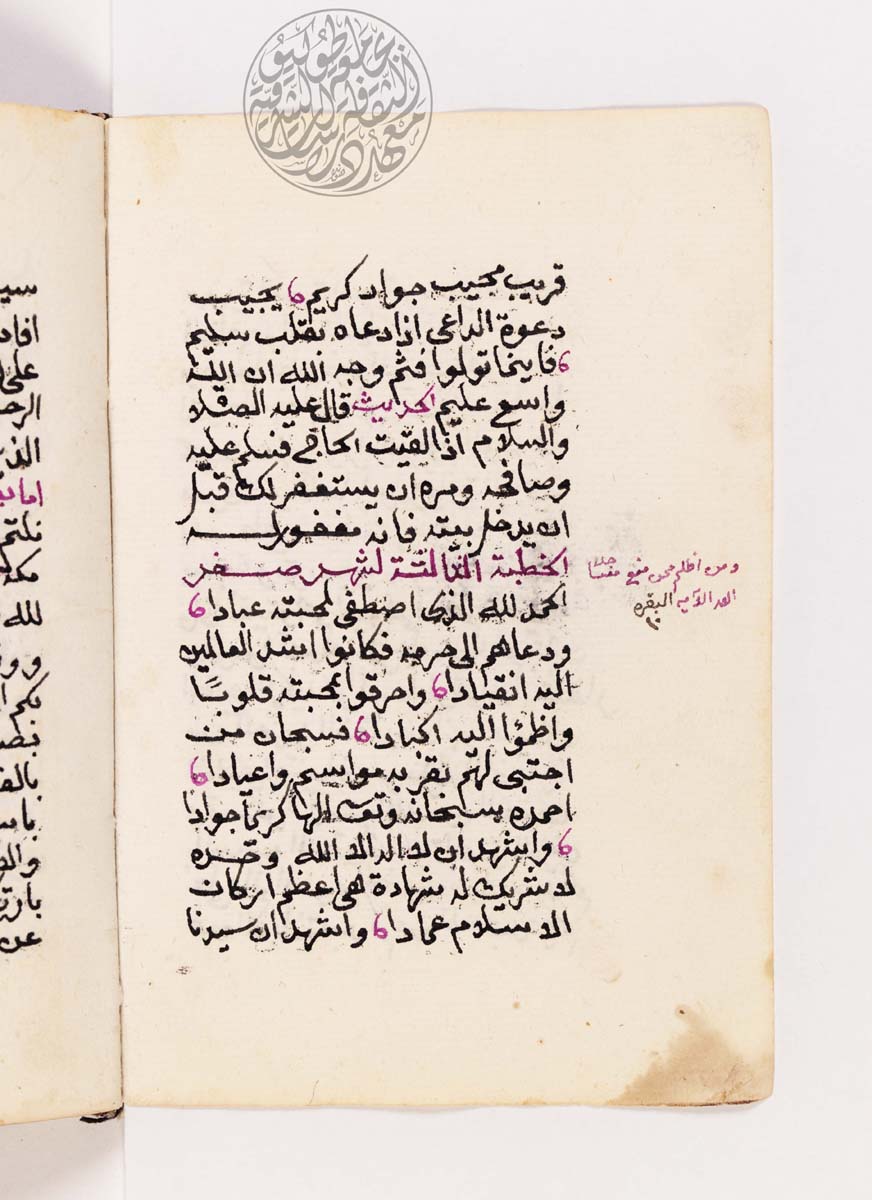 قريب مجيب جواد كريم يجيب
دعوة الداعى اذا دعاه بقلب سليم
فاينما تولوا فثم وجه الله ان الله
واسع عليم الحديث قال عليه الصلاه
والسلام اذا لقيت الحاج فسلم عليه
وصافحه ومره ان يستغفر لك قبل
ان يدخل بيته فانه مغفور له
الخطبة الثالثة لشهر صفر
الحمد لله الذى اصطفى لمحبته عبادا
ودعاهم الى حرمه فكانوا اشد العالمين
اليه انقيادا واحرقوا بمحبته قلوبًا
واظمؤا اليه اكبادا فسبحان من
اجتبى لهم بقربه مواسم واعيادا
احمده سبحانه وتعالى الها كريما جوادا
واشهد ان لا اله الا الله وحده
لا شريك له شهادة هى اعظم اركان
الاسلام عمادا واشهد ان سيدنا
ومن اظلم ممن منع مساجد
الله الآيه البقره